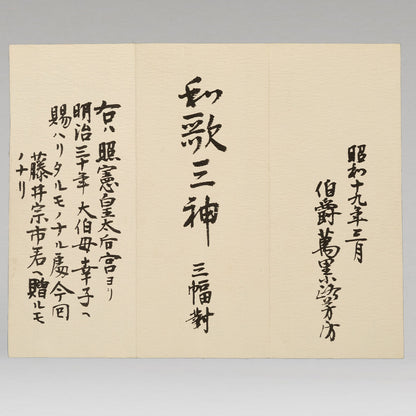 昭和十九年三月
伯爵萬里小路芳房
和歌三神 三幅對
右ハ照憲皇太后宮ヨリ
明治三十年大伯母幸子ヘ
賜ハリタルモノナル處今回
藤井宗市君ヘ贈ルモ
ノナリ